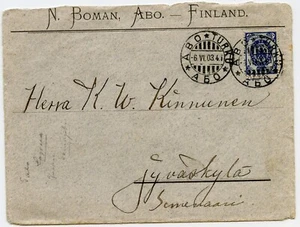 N. BOMAN, ABO. — FINLAND.
ABO TURKU
-6.VI.03.4
АБО
Herra K. W. Kinnunen
Jyväskylä
Seminaari